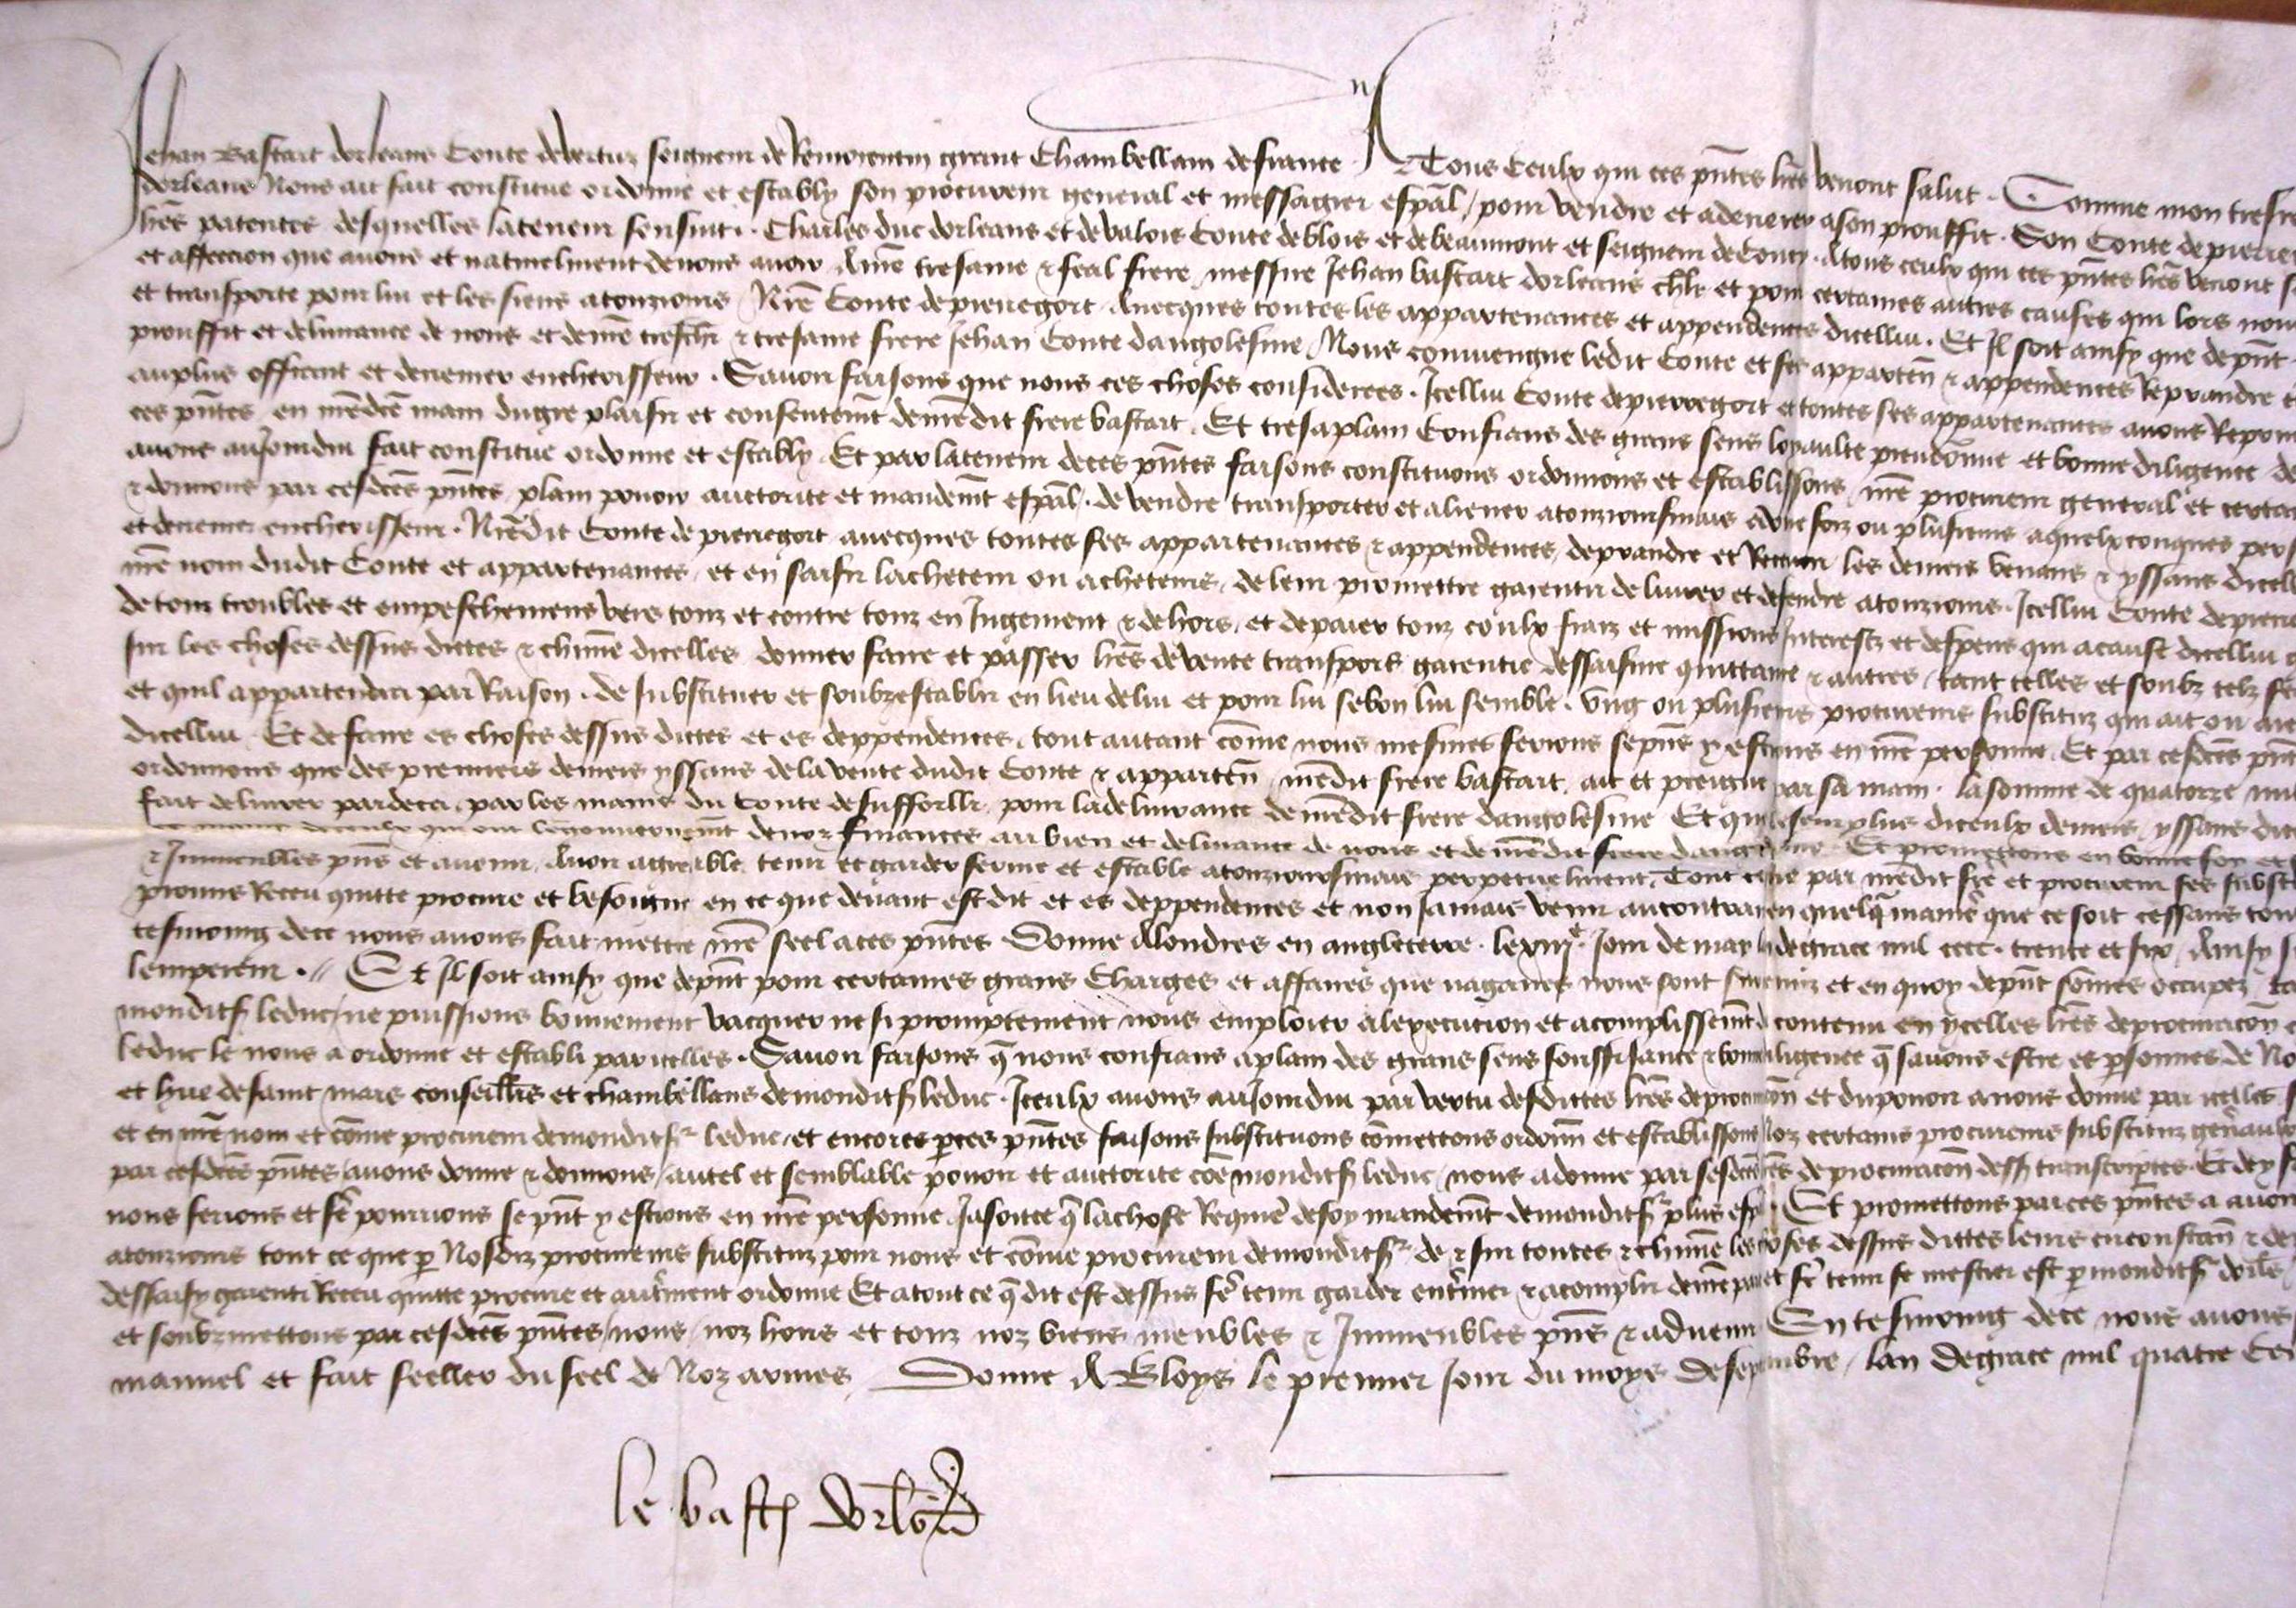 Jehan Bastart dorleans Conte de vertuz seigneur de Remorentin grant Chambellam de france A Tous Ceulx qui ces pntes lres verront salut. Comme mon tresre
dorleans Nous ait fait constitue ordonne et estably son procureur general et messagier espal / pour vendre et adenerer a son prouffit. Son Conte de pierre
lres patentes desquelles la teneur sensuit. Charles duc dorleans et de valois Conte de blois et de beaumont et seigneur de Coucy. A tous ceulx qui ces pntes lres verront s
et affeccion que avons et naturelment devons avoir A nre tresame & feal frere messire Jehan bastart dorleans chlr et pour certaines autres causes qui lors nou
et transporte pour lui et les siens a tousiours Nre Conte de pierregort Avecques toutes les appartenances et appendences dicellui. Et Il soit ainsy que de pnt
prouffit et delivrance de nous et de nre treschr & tresame frere Jehan Conte dangolesme Nous conviengne ledit Conte et ses apparten & appendences Reprandre e
au plus offrant et derrenier encherisseur. Savoir faisons que nous ces choses considerees. Icellui Conte de pierregort et toutes ses appartenances avons Repri
ces pntes en nredte main du gre plaisir et consentemt de nredit frere bastart. Et tresaplain Confians des grans sens loyaulte preudomie et bonne diligence de
avons aujourdui fait constitue ordonne et estably Et par la teneur de ces pntes faisons constituons ordonnons et establissons nre procureur general et certa
& donnons par cesdtes pntes plain povoir auctorite et mandemt espal. de vendre transporter et aliener a tousioursmais a une foiz ou plusieurs a quelxconques pers
et derrenier encherisseur. Nredit Conte de pierregort avecques toutes ses appartenances & appendences, de prandre et Recevoir les deniers venans & yssans dicel
nre nom dudit Conte et appartenances, et en saisir lacheteur ou acheteurs, de leur promettre garentir delivrer et defendre a tousiours. Icellui Conte de pierre
de tous troubles et empeschemens vers touz et contre touz en Jugement & dehors, et de paier touz coulx fraiz et missions Interestz et despens qui a cause dicellui
sur les choses dessus dictes & chune dicelles donner faire et passer lres de vente transport garentie dessaisine quittance & autres, tant telles et soubz telz se
et quil appartendra par Raison. de substituer et soubzestablir en lieu de lui et pour lui se bon lui semble. Ung ou plusieurs procureurs substituz qui ait ou ai
dicellui. Et de faire es choses dessus dictes et es deppendences, tout autant come nous mesmes ferions se pns y estions en nre personne. Et par cesdtes pnt
ordonnons que des premiers deniers yssans de la vente dudit Conte & apparten nredit frere bastart, ait et preigne par sa main. la somme de quatorze mil
fait delivrer pardeca par les mains du Conte de suffollk pour la delivrance de nredit frere dangolesme Et que le seurplus diceulx deniers yssans du
gouvernemt de noz finances au bien et delivrance de nous et de nredit frere dangolesme. Et promettons en bonne foy et
& Immeubles pns et avenir. Avoir agreable tenir et garder ferme et estable a tousioursmais perpetuelment. Tout ce que par nredit fre et procureur ses subst
promis Receu quitte procure et besoigne en ce que devant est dit et es deppendences et non Jamais venir au contraire en quelq maniere que ce soit cessans tou
tesmoing de ce nous avons fait mettre nre seel a ces pntes Donne A londres en angleterre. le Jour de may lan de grace mil cccc. trente et six, Ainsy si
lempereur. Et Il soit ainsy que de pnt pour certaines grans Charges et affaires que nagaires nous sont survenuz et en quoy de pnt sommes occupez ta
mondits leduc ne puissions bonnement vacquer ne si promptement nous emploier a lexecution et acomplissemt du contenu en ycelles lres de procuracon
leduc le nous a ordonne et establi par icelles. Savoir faisons q nous confians a plain des grans sens souffisance & bonne diligence q savons estre es psonnes de No
et hue de saint mars conseillrs et chambellans de mondits leduc. Iceulx avons aujourdui par vertu desdictes lres de procuracon et du povoir a nous donne par icelles
et en nre nom et come procureur de mondits leduc, et encores p ces pntes faisons substituons comettons ordonn et establissons Noz certains procureurs substituz generaulx
par cesdtes pntes avons donne & donnons autel et semblable povoir et auctorite coe mondits leduc nous a donne par sesdtes lres de procuracon dess transcriptes. Et de y f
nous ferions et fe pourrions se pnt y estions en nre personne. Jasoitce q la chose Requiere de soy mandemt de mondits plus espal. Et promettons par ces pntes a avoir
a tousiours tout ce que p Nosdiz procureurs substituz pour nous et come procureur de mondits de & sur toutes & chune les choses dessus dittes leurs circonstan & de
dessaisy garenti Receu quitte procure et autrment ordonne Et a tout ce q dit est dessus fe tenir garder enteriner & acomplir de nre part et fe tenir se mestier est p mondits dorls
et soubzmettons par cesdtes pntes nous noz hoirs et touz noz biens meubles & Immeubles pns & advenir En tesmoing de ce nous avons
manuel et fait seeller du seel de Noz armes Donne A Bloys le premier Jour du moys de septembre, lan de grace mil quatre Cen
le bast dorls